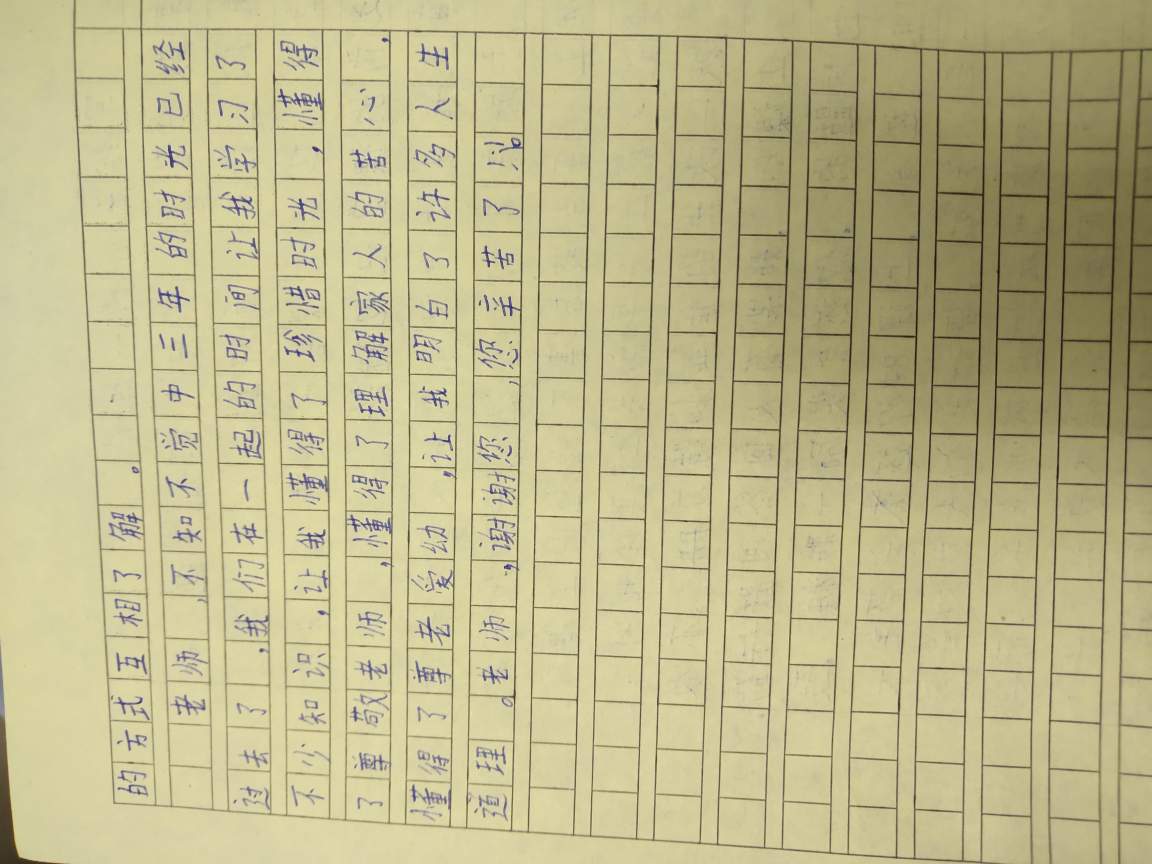 的方式互相了解。
老师,不知不觉中三年的时光已经
过去了,我们在一起的时间让我学习了
不少知识,让我懂得了珍惜时光,懂得
了尊敬老师,懂得了理解家人的苦心.
懂得了尊老爱幼,让我明白了许多人生
道理。老师,谢谢您,您辛苦了!